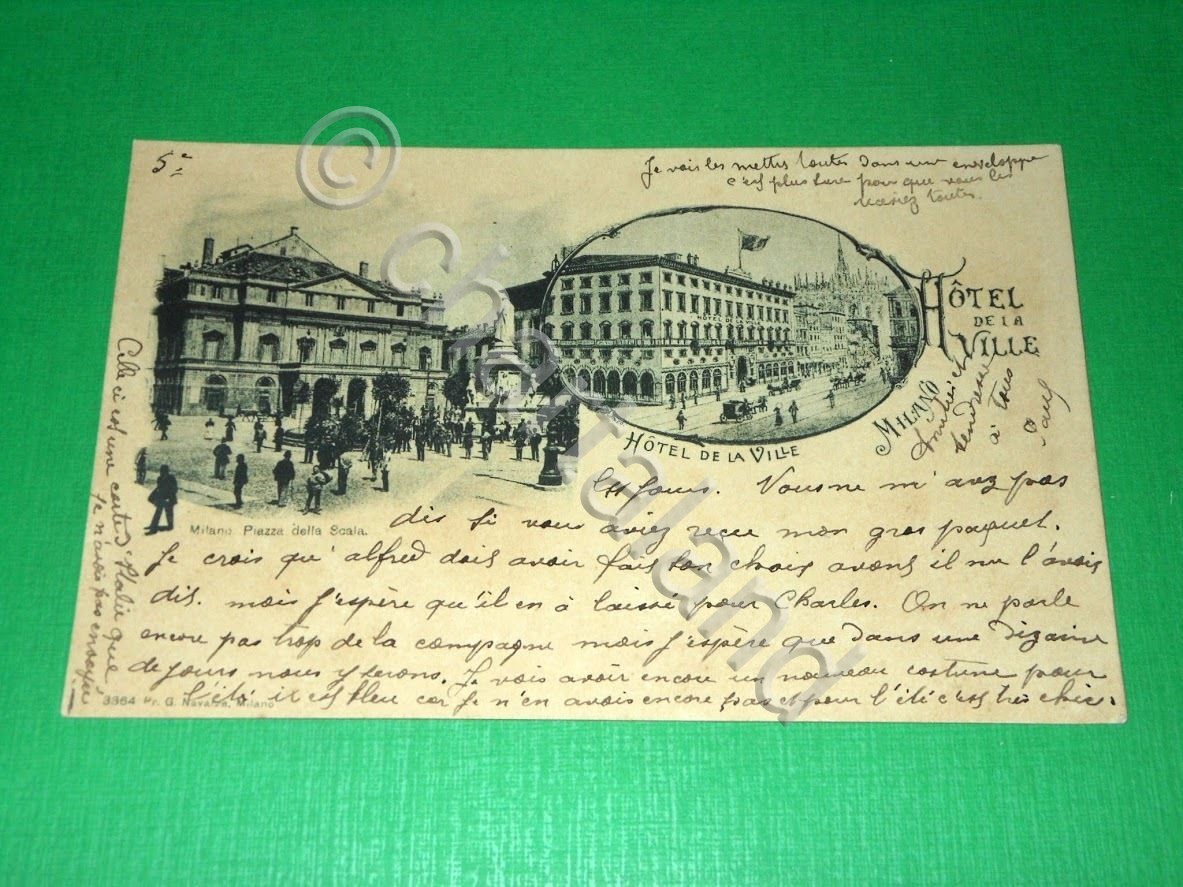 5e
Je vais les mettre toutes dans une enveloppe
c'est plus sure pour que vous les
receviez toutes.
HÔTEL
DE LA
VILLE
MILANO
HOTEL DE LA VILLE
HÔTEL DE LA VILLE
Milano. Piazza della Scala.
tendresse
à tous
Paul
les jours. Vous ne m'avez pas
dis si vous aviez recu mon gros paquet.
Je crois qu'alfred dois avoir fait son choix avant il me l'avais
dit. mais j'espère qu'il en à laissé pour Charles. On ne parle
encore pas trop de la campagne mais j'espère que dans une dizaine
de jours nous y serons. Je vais avoir encore un nouveau costume pour
l'été il est bleu car je n'en avais encore pas et pour l'été c'est très chic.
3364 Pr. G. Navarra, Milano
Celle ci est une carte d'Italie que
je n'avais pas envoyée
© chartaland